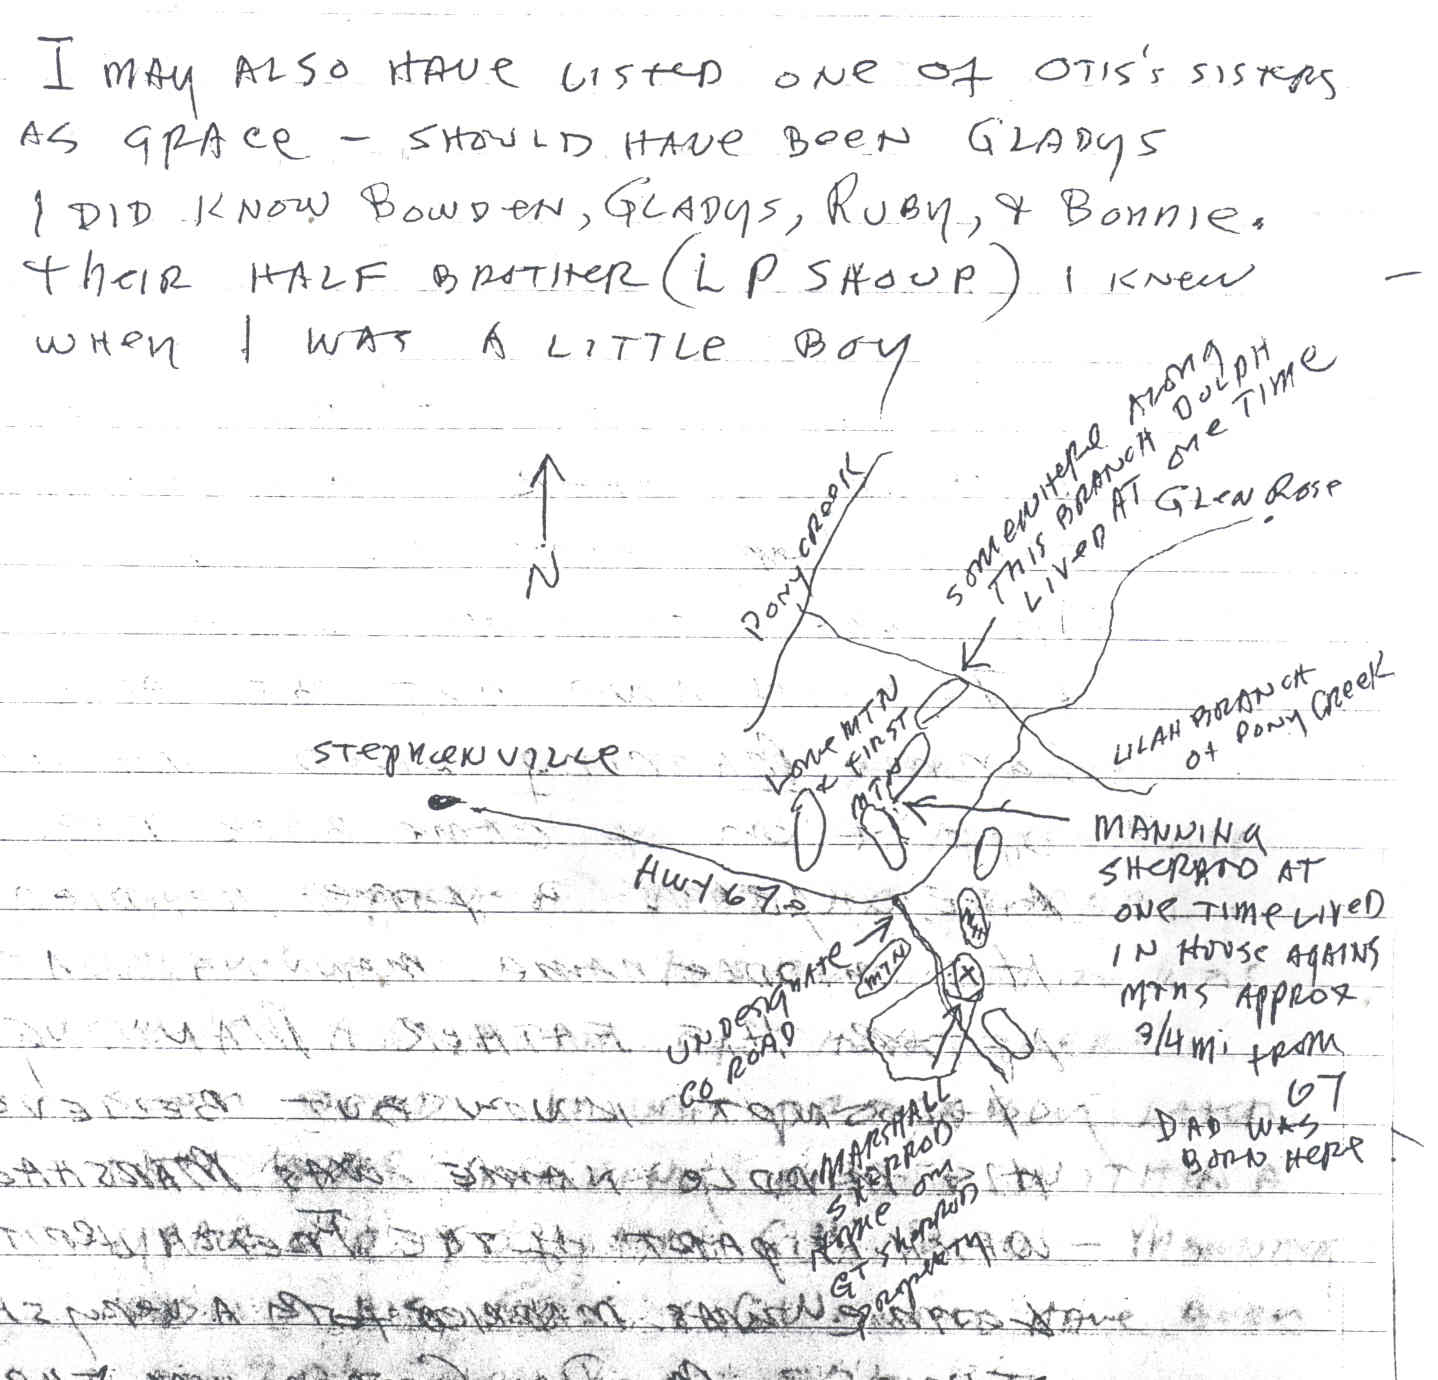 I MAY ALSO HAVE LISTED ONE OF OTIS'S SISTERS
AS GRACE - SHOULD HAVE BEEN GLADYS
I DID KNOW BOWDEN, GLADYS, RUBY, & BONNIE.
THEIR HALF BROTHER (LP SHOUP) I KNEW -
WHEN I WAS A LITTLE BOY
N
PONY CREEK
SOMEWHERE ALONG
THIS BRANCH DOLPH
LIVED AT ONE TIME
GLEN ROSE
STEPHENVILLE
LONE MTN
& FIRST
MTN
ULAH BRANCH
OF PONY CREEK
HWY 67
MANNING
SHERROD AT
ONE TIME LIVED
IN HOUSE AGAINS
MTNS APPROX
3/4 MI FROM
67
DAD WAS
BORN HERE
UNDESIGNATE
CO ROAD
MTN
X
MARSHALL
SHERROD
HOME ON
GT SHERROD
PROPERTY